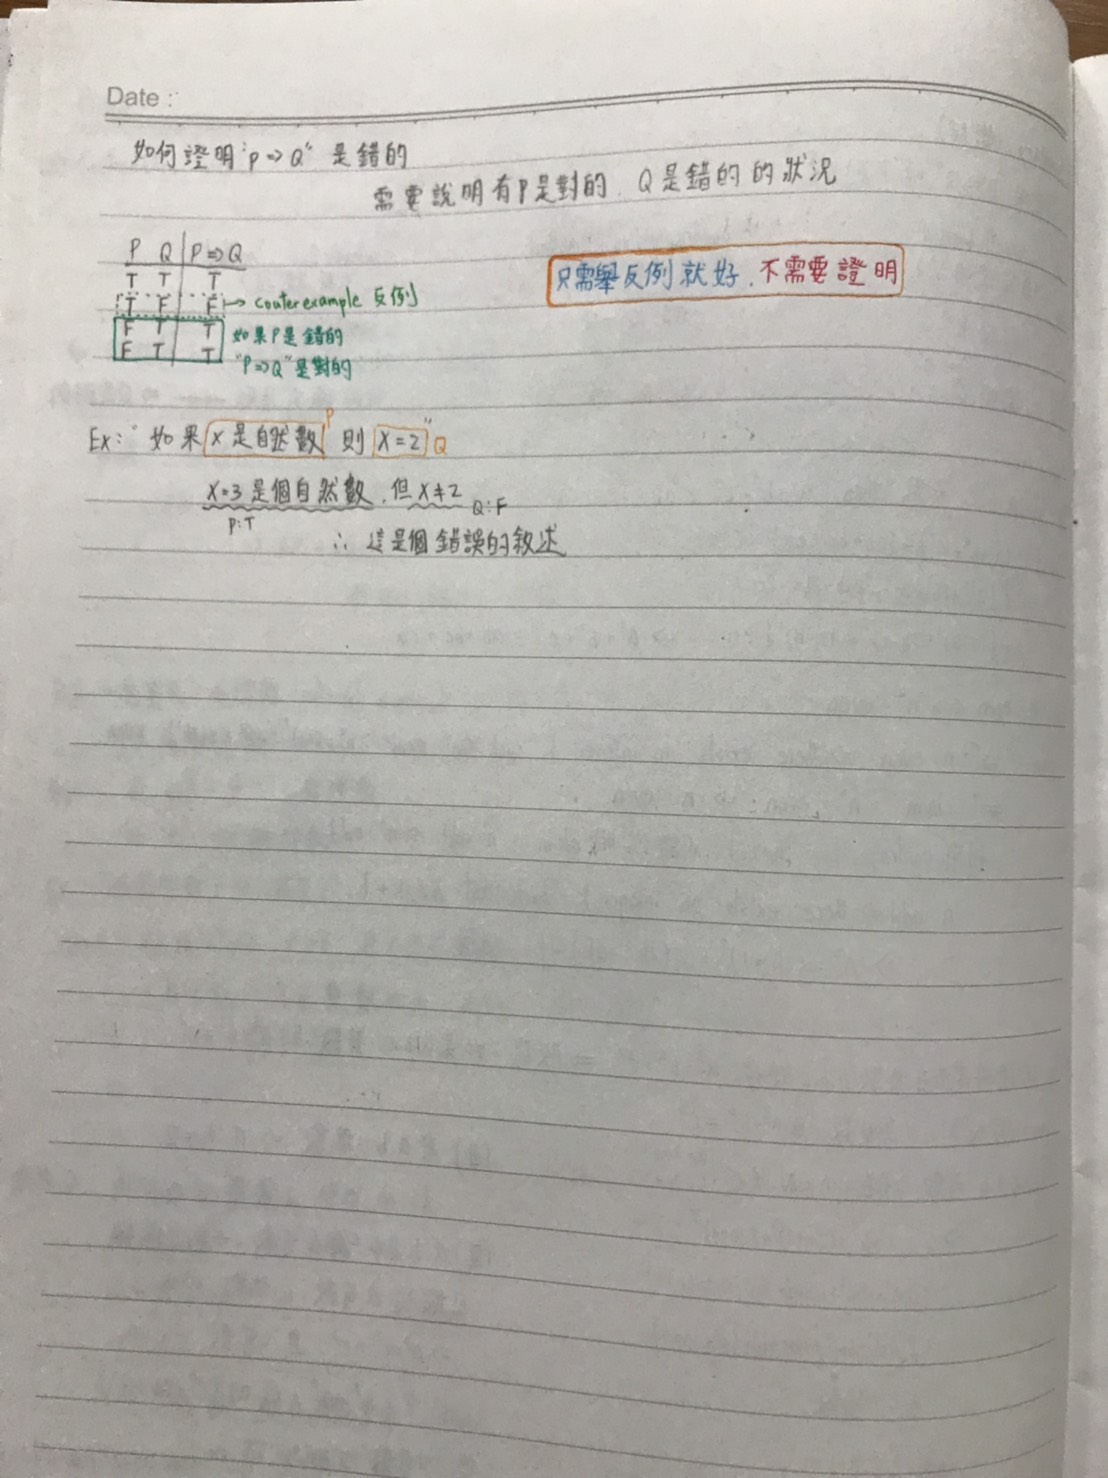 Date :
如何證明"P⇒Q" 是錯的
需要說明有P是對的, Q是錯的的狀況
P Q P⇒Q
T T T
T F F → couterexample 反例
F T T 如果P是錯的
F T T "P⇒Q"是對的
只需舉反例就好, 不需要證明
Ex: "如果 x是自然數 P 則 x=2" Q
x=3是個自然數, 但 x≠2
P:T Q:F
∴ 這是個錯誤的敘述